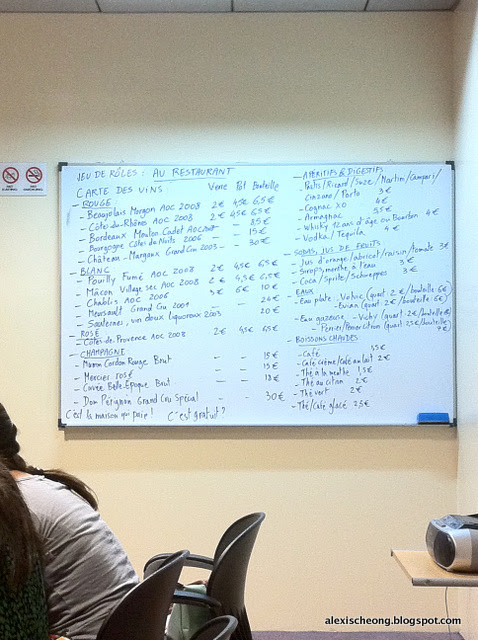 JEU DE RÔLES : AU RESTAURANT
CARTE DES VINS Verre Pot Bouteille
- ROUGE
- Beaujolais Morgon AOC 2008 2€ 4,5€ 6,5€
- Côtes du Rhône AOC 2008 2€ 4,5€ 6,5€
- Bordeaux Mouton Cadet AOC - -
- Bourgogne Côtes de Nuits 2006 - - 15€
- Château-Margaux Grand Cru 2003 - - 30€
- BLANC
- Pouilly Fumé AOC 2008 2€ 4,5€ 6,5€
- Mâcon Village sec AOC 2008 2€ 4,5€ 6,5€
- Chablis AOC 2006 3€ 6€ 10€
- Meursault Grand Cru 2001 - - 24€
- Sauternes, vin doux liquoreux 2003 20€
- ROSÉ
- Côtes de Provence AOC 2008 2€ 4,5€ 6,5€
- CHAMPAGNE
- Mumm Cordon Rouge Brut - - 15€
- Mercier rosé - - 15€
- Cuvée Belle-Epoque Brut - - 18€
- Dom Pérignon Grand Cru Spécial - 30€
C'est la maison qui paie ! C'est gratuit ?
- APÉRITIFS & DIGESTIFS
- Pastis/Ricard/Suze/Martini/Campari/
Cinzano/Porto 3€
- Cognac XO 4€
- Armagnac 5,5€
- Whisky 12 ans d'âge ou Bourbon 4€
- Vodka/Tequila 4€
- SODAS, JUS DE FRUITS
- Jus d'orange/abricot/raisin/tomate 3€
- Sirops menthe à l'eau 3€
- Coca/Sprite/Schweppes 3€
- EAUX
- Eau plate : Volvic (quart 2€/bouteille 6€)
- Evian (quart 2€/bouteille 6€)
- Eau gazeuse : - Vichy (quart 2€/bouteille
- Perrier (quart 2,5€/bouteille
- BOISSONS CHAUDES
- Café 1,5€
- Café crème/Café au lait 2€
- Thé à la menthe 1,5€
- Thé au citron 2€
- Thé vert 2€
- Thé/Café glacé 2,5€
alexischeong.blogspot.com